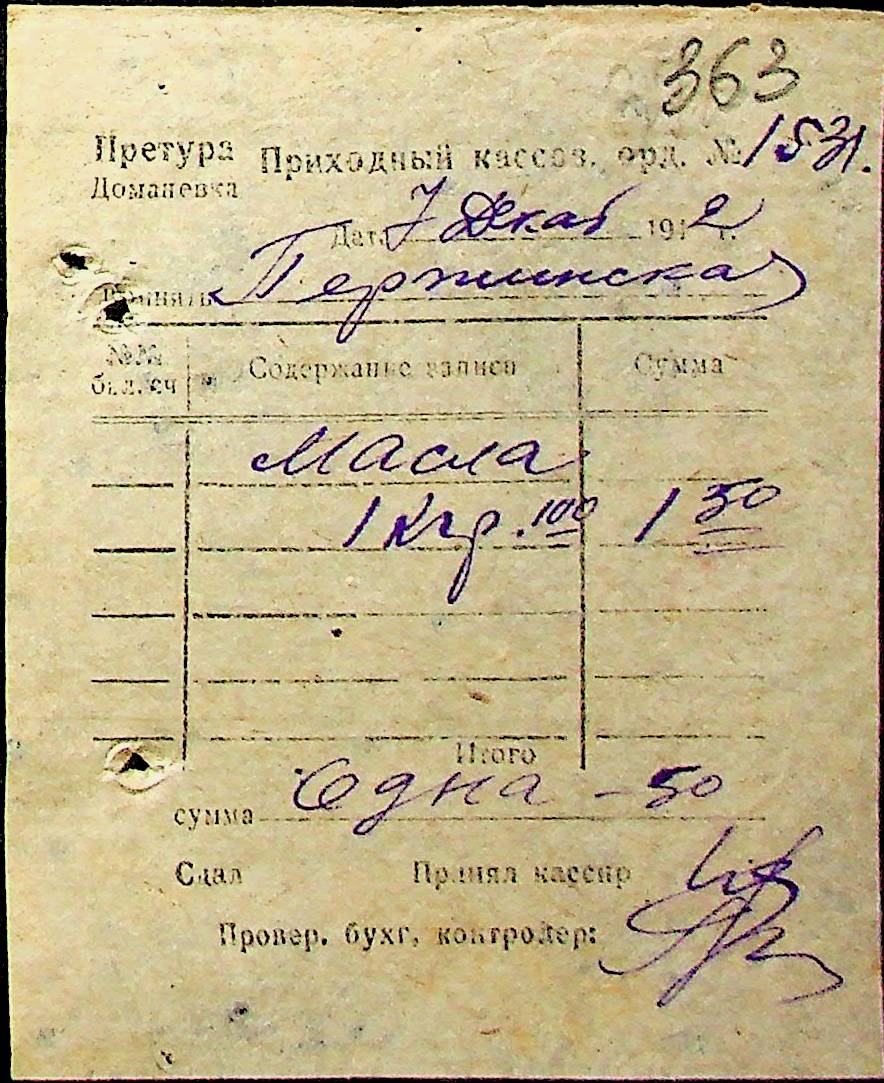 363
Претура Приходный кассов. орд. № 1531.
Домапевка
Дата 7 Декаб 1942 г.
Принять
№№ бил. сч Содержание записи Сумма
Масла
1 Кгр. 100 1 50
Итого
сумма Одна - 50
Сдал Принял кассир
Провер. бухг, контролер: